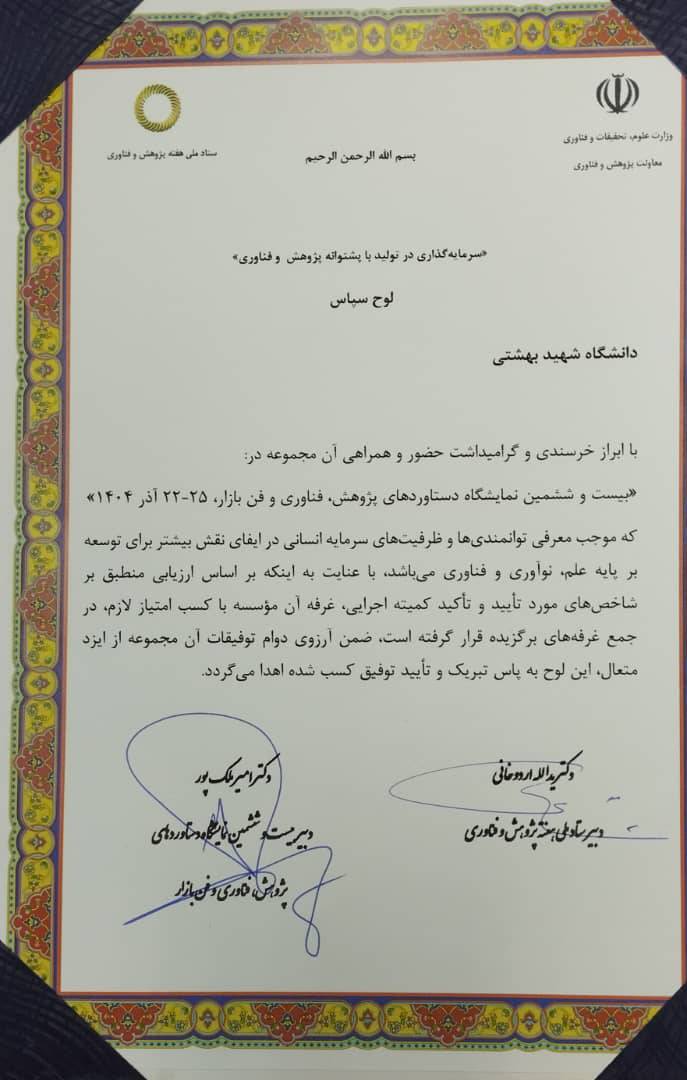 وزارت علوم، تحقیقات و فناوری
معاونت پژوهش و فناوری
ستاد ملی هفته پژوهش و فناوری
بسم الله الرحمن الرحیم
«سرمایه‌گذاری در تولید با پشتوانه پژوهش و فناوری»
لوح سپاس
دانشگاه شهید بهشتی
با ابراز خرسندی و گرامیداشت حضور و همراهی آن مجموعه در:
«بیست و ششمین نمایشگاه دستاوردهای پژوهش، فناوری و فن بازار، ۲۵-۲۲ آذر ۱۴۰۴»
که موجب معرفی توانمندی‌ها و ظرفیت‌های سرمایه انسانی در ایفای نقش بیشتر برای توسعه
بر پایه علم، نوآوری و فناوری می‌باشد، با عنایت به اینکه بر اساس ارزیابی منطبق بر
شاخص‌های مورد تأیید و تأکید کمیته اجرایی، غرفه آن مؤسسه با کسب امتیاز لازم، در
جمع غرفه‌های برگزیده قرار گرفته است، ضمن آرزوی دوام توفیقات آن مجموعه از ایزد
متعال، این لوح به پاس تبریک و تأیید توفیق کسب شده اهدا می‌گردد.
دکتر یدالله اردوخانی
دبیر ستاد ملی هفته پژوهش و فناوری
دکتر امیر ملک پور
دبیر بیست و ششمین نمایشگاه دستاوردهای
پژوهش، فناوری و فن بازار